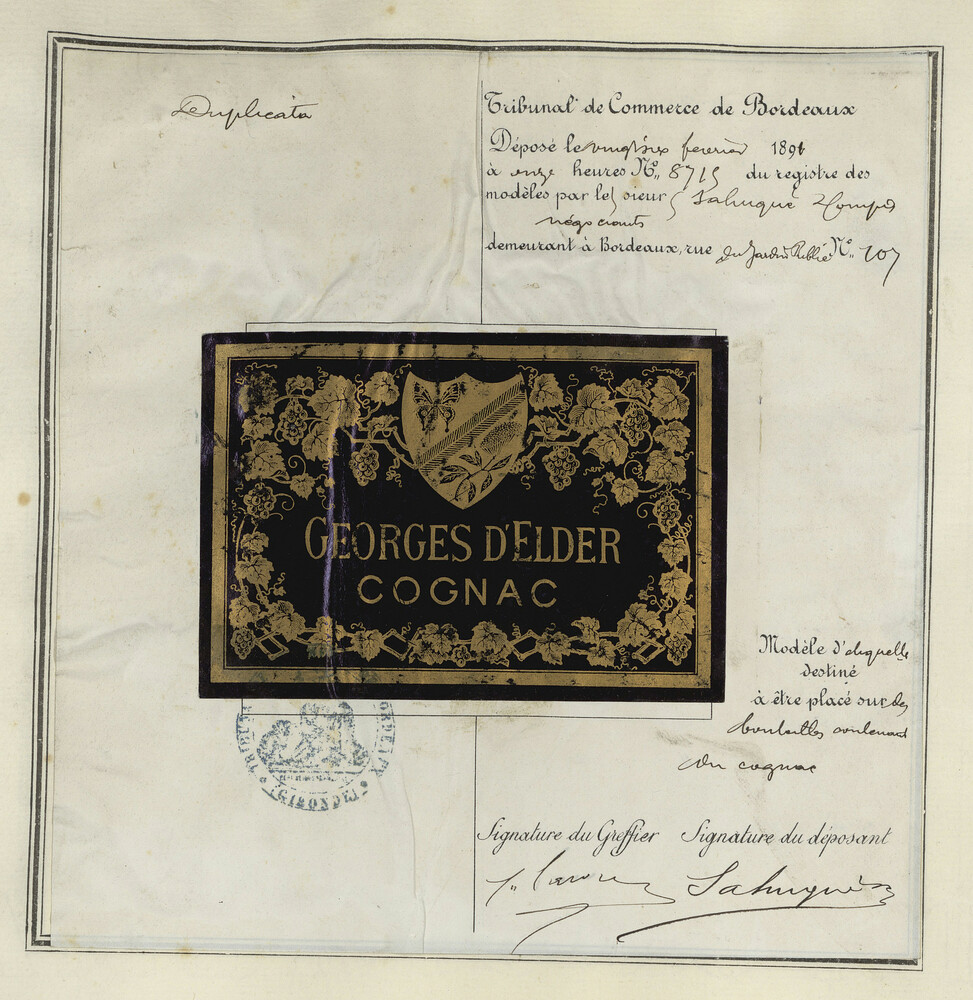 Duplicata
Tribunal de Commerce de Bordeaux
Déposé le vingt six fevrier 1891
à onze heures N° 8715 du registre des
modèles par les sieurs Lahuqué & Compie
négociants
demeurant à Bordeaux, rue du Jardin Public N° 107
GEORGES D'ELDER
COGNAC
Modèle d'etiquette
destiné
à être placé sur des
bouteilles contenant
du cognac
(GIRONDE)
Signature du Greffier Signature du déposant